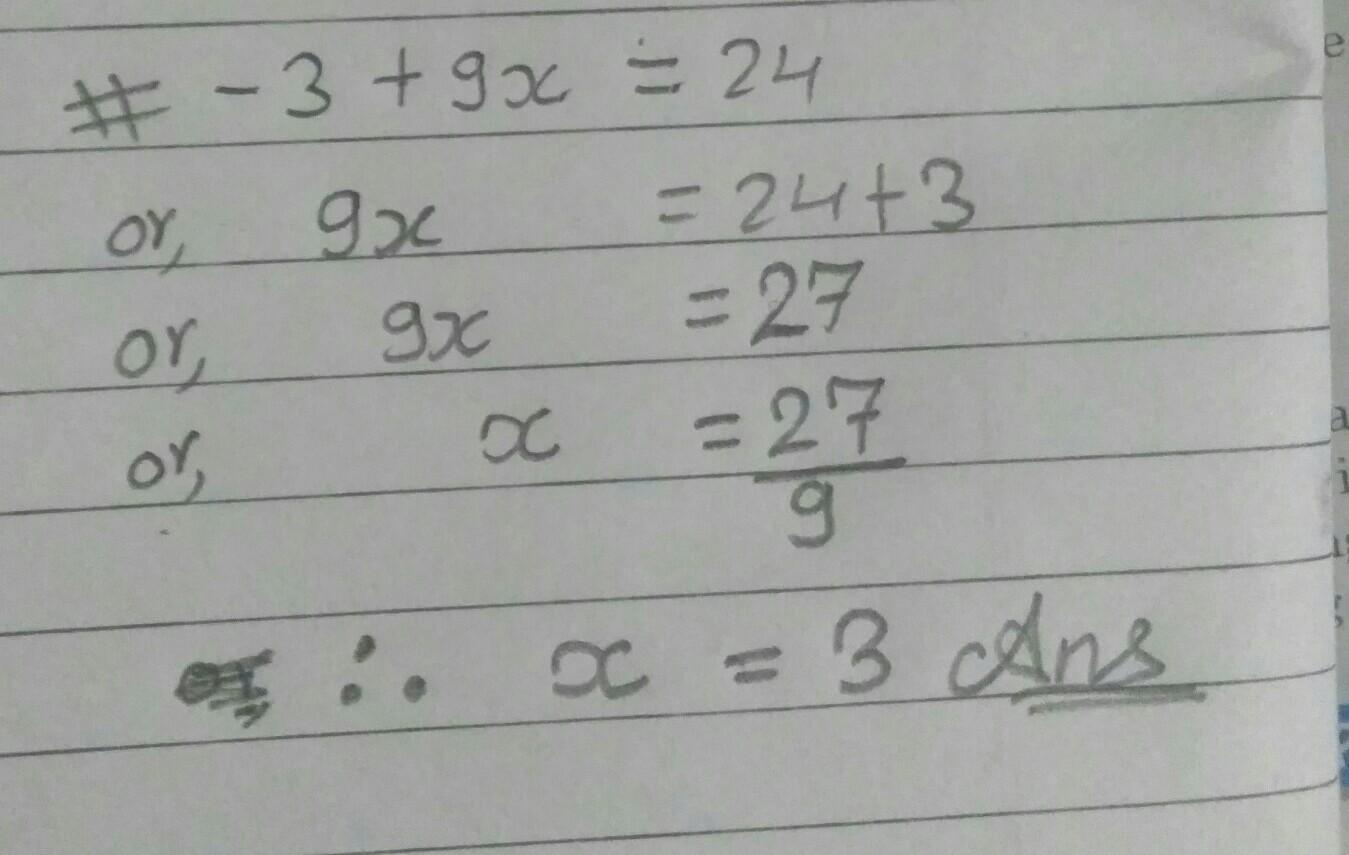 # -3 + 9x = 24
or, 9x = 24+3
or, 9x = 27
or, x = 27/9
∴ x = 3 Ans